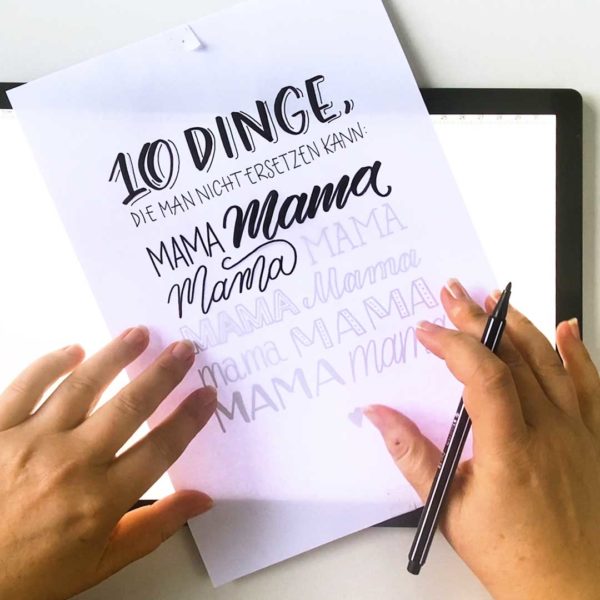 10 DINGE,
DIE MAN NICHT ERSETZEN KANN:
MAMA Mama
Mama MAMA
MAMA Mama
mama MAMA
MAMA mama